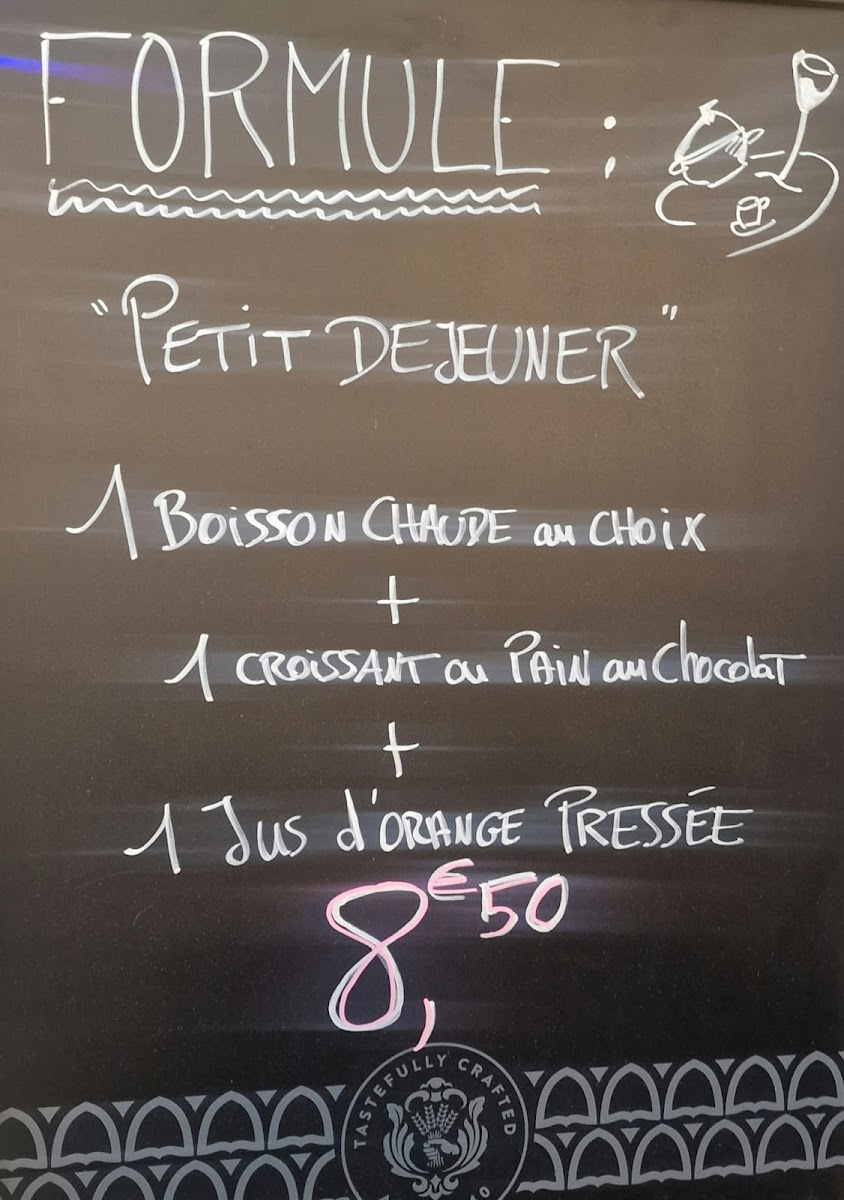 FORMULE :
"PETIT DEJEUNER"
1 BOISSON CHAUDE au CHOIX
+
1 CROISSANT ou PAIN au Chocolat
+
1 Jus d'ORANGE PRESSÉE
8,€50
TASTEFULLY CRAFTED